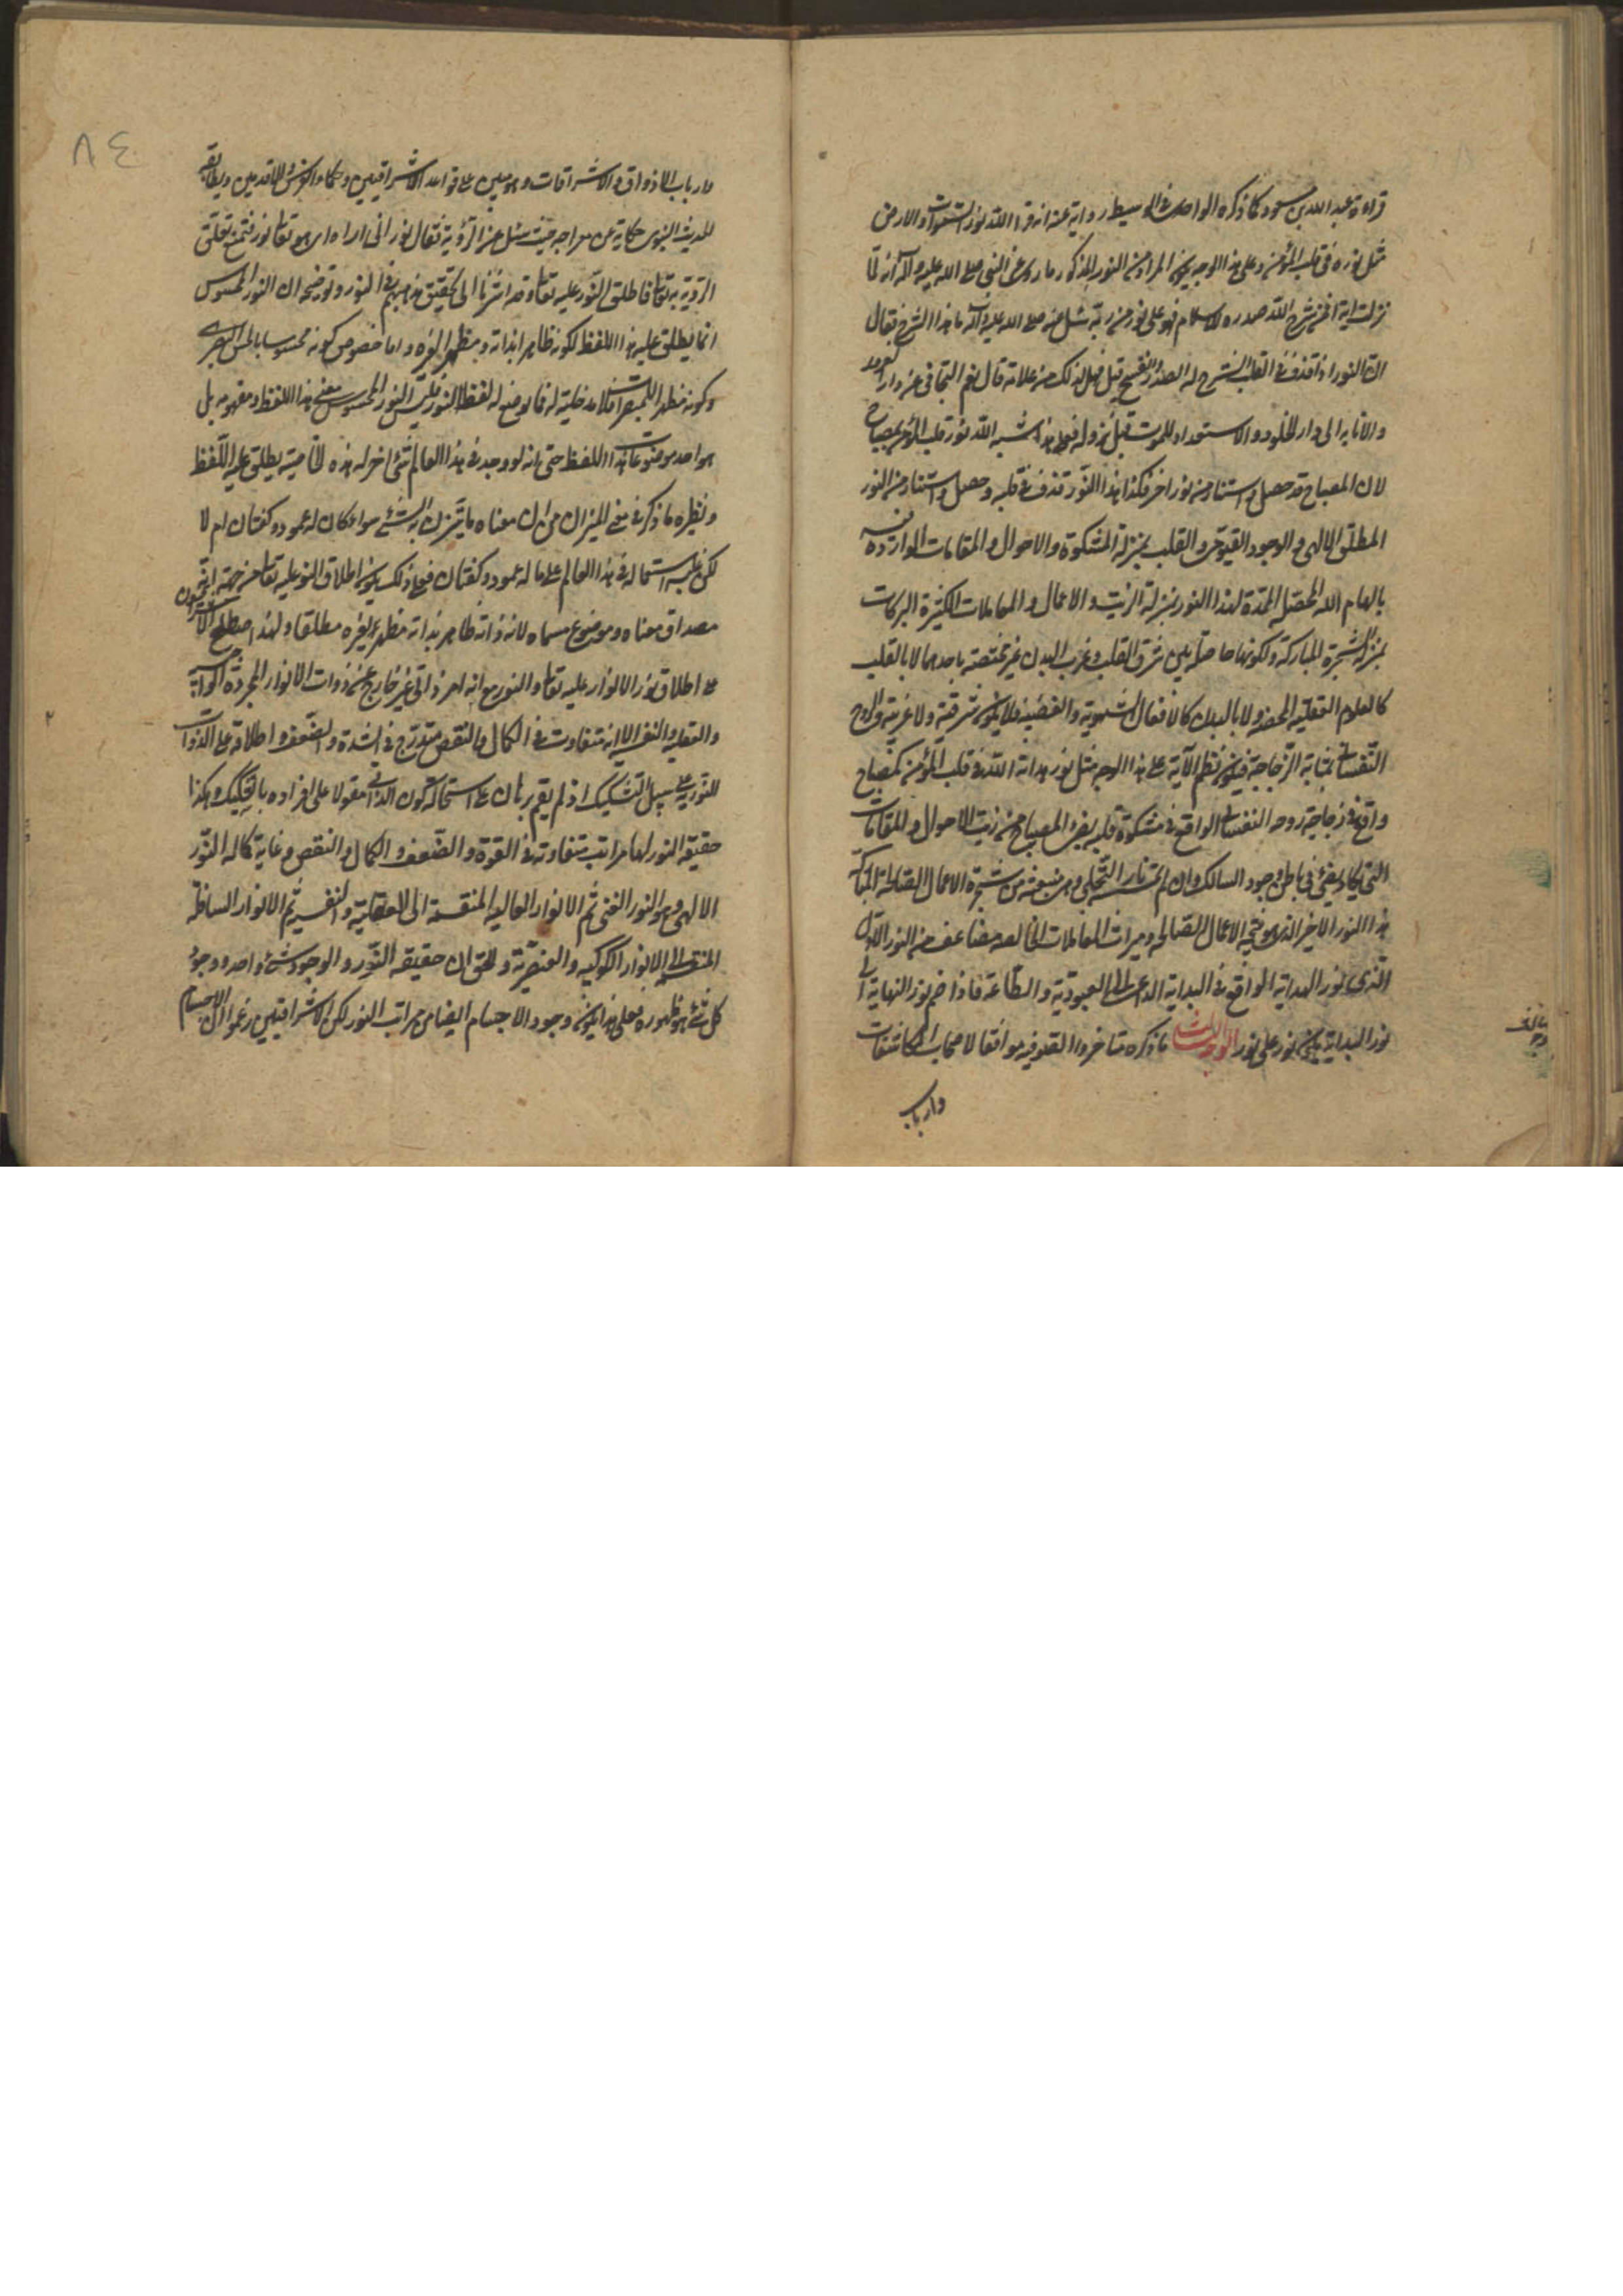 قراءة عبد الله بن مسعود كما ذكره الواحدى فى الوسيط رواية عنه انه قرا الله نور السموات والارض
مثل نوره فى قلب المؤمن وعلى هذا الوجه يكون المراد من النور المذكور ما روى عن النبى صلى الله عليه وآله انه لما
نزلت اية افمن شرح الله صدره للاسلام فهو على نور من ربه سئل عنه صلى الله عليه وآله ما هذا الشرح فقال
ان النور اذا قذف فى القلب انشرح له الصدر وانفسح قيل فهل لذلك من علامة قال نعم التجافى عن دار الغرور
والانابه الى دار الخلود والاستعداد للموت قبل نزوله فعلى هذا شبه الله نور قلب المؤمن بمصباح
لان المصباح قد حصل واستنار من نور اخر فكذا هذا النور قذف فى قلبه وحصل واستنار من النور
المطلق الالهى والوجود القيومى والقلب بمنزلة المشكوة والاحوال والمقامات الواردة فيه
بالهام الله المحصّلة الممدّة لهذا النور بمنزلة الزيت والاعمال والمعاملات الكثيرة البركات
بمنزلة الشجرة المباركة ولكونها حاصلة بين شرق القلب وغرب البدن غير مختصة باحدهما لا بالقلب
كالعلوم العقلية المحضه ولا بالبدن كالافعال الشهوية والغضبية فلا يكون شرقية ولا غربية والروح
النفسانى بمثابة الزجاجة فيكون نظم الآية على هذا الوجه مثل نور هداية الله فى قلب المؤمن كمصباح
واقع فى زجاجة روحه النفسانى الواقع فى مشكوة قلبه يضئ المصباح من زيت الاحوال والمقامات
التى يكاد يضئ فى باطن وجود السالك وان لم تمسسه نار التجلى وهى منبعثة من شجرة الاعمال الصالحة المباركة
هذا النور الاخير الذى هو نتيجة الاعمال الصالحه وميراث المعاملات الخالصه مضاعف من النور الاول
الذى نور الهداية الواقع فى البداية الداعى الى العبودية والطاعة فاذا ضم نور النهاية الى
نور البداية يكون نور على نور ما ذكره متاخروا الصوفيه موافقا لاصحاب المكاشفات
وارباب
٨٤
وارباب الاذواق والاشراقات وهو مبين على قواعد الاشراقيين وحكماء الفرس الاقدمين ويطابقه
الحديث النبوى حكاية عن معراجه حيث سئل عن الرؤية فقال نور انى اراه اى هو تعالى نور فتمتنع تعلق
الرؤية به تعالى فاطلق النور عليه تعالى وقد اشرنا الى تحقيق مذهبهم فى النور وتوضيحه ان النور المحسوس
انما يطلق عليه هذا اللفظ لكونه ظاهرا بذاته ومظهرا لغيره واما خصوص كونه محسوسا بالحس البصرى
وكونه مظهرا للمبصرات فلا مدخلية له فيما يوضع له لفظ النور فليس النور المحسوس معنى هذا اللفظ ومفهومه بل
هو احد موضوعات هذا اللفظ حتى انه لو وجد فى هذا العالم شئ اخر له هذه الخاصية يطلق عليه اللفظ
ونظيره ما ذكر فى معنى الميزان من ان معناه ما يتزن به الشئ سواء كان له عمود وكفتان ام لا
لكن غلب استعماله فى هذا العالم على ما له عمود وكفتان فعلى ذلك يكون اطلاق النور عليه تعالى من جهة انه
مصداق معناه وموضوع مسماه لانه ذاته ظاهر بذاته مظهر لغيره مطلقا ولهذا اصطلح الاشراقيون
على اطلاق نور الانوار عليه تعالى والنور مع انه امر ذاتى غير خارج عن ذوات الانوار المجردة الواجبية
والعقلية والنفسية الا انه متفاوت فى الكمال والنقص متدرج فى الشدة والضعف واطلاقه على الذوات
النورية على سبيل التشكيك اذ لم يقم برهان على استحالة كون الذاتى مقولا على افراده بالتشكيك وهكذا
حقيقه النور لها مراتب متفاوته فى القوة والضعف والكمال والنقص وغاية كماله النور
الالهى وهو النور الغنى ثم الانوار العاليه المنقسمة الى العقلية والنفسية ثم الانوار السافلة
المنقسمة الى الانوار الكوكبيه والعنصرية والحق ان حقيقه النور والوجود شئ واحد ووجود
كل شئ هو ظهوره فعلى هذا يكون وجود الاجسام ايضا من مراتب النور لكن الاشراقيين زعموا ان الاجسام